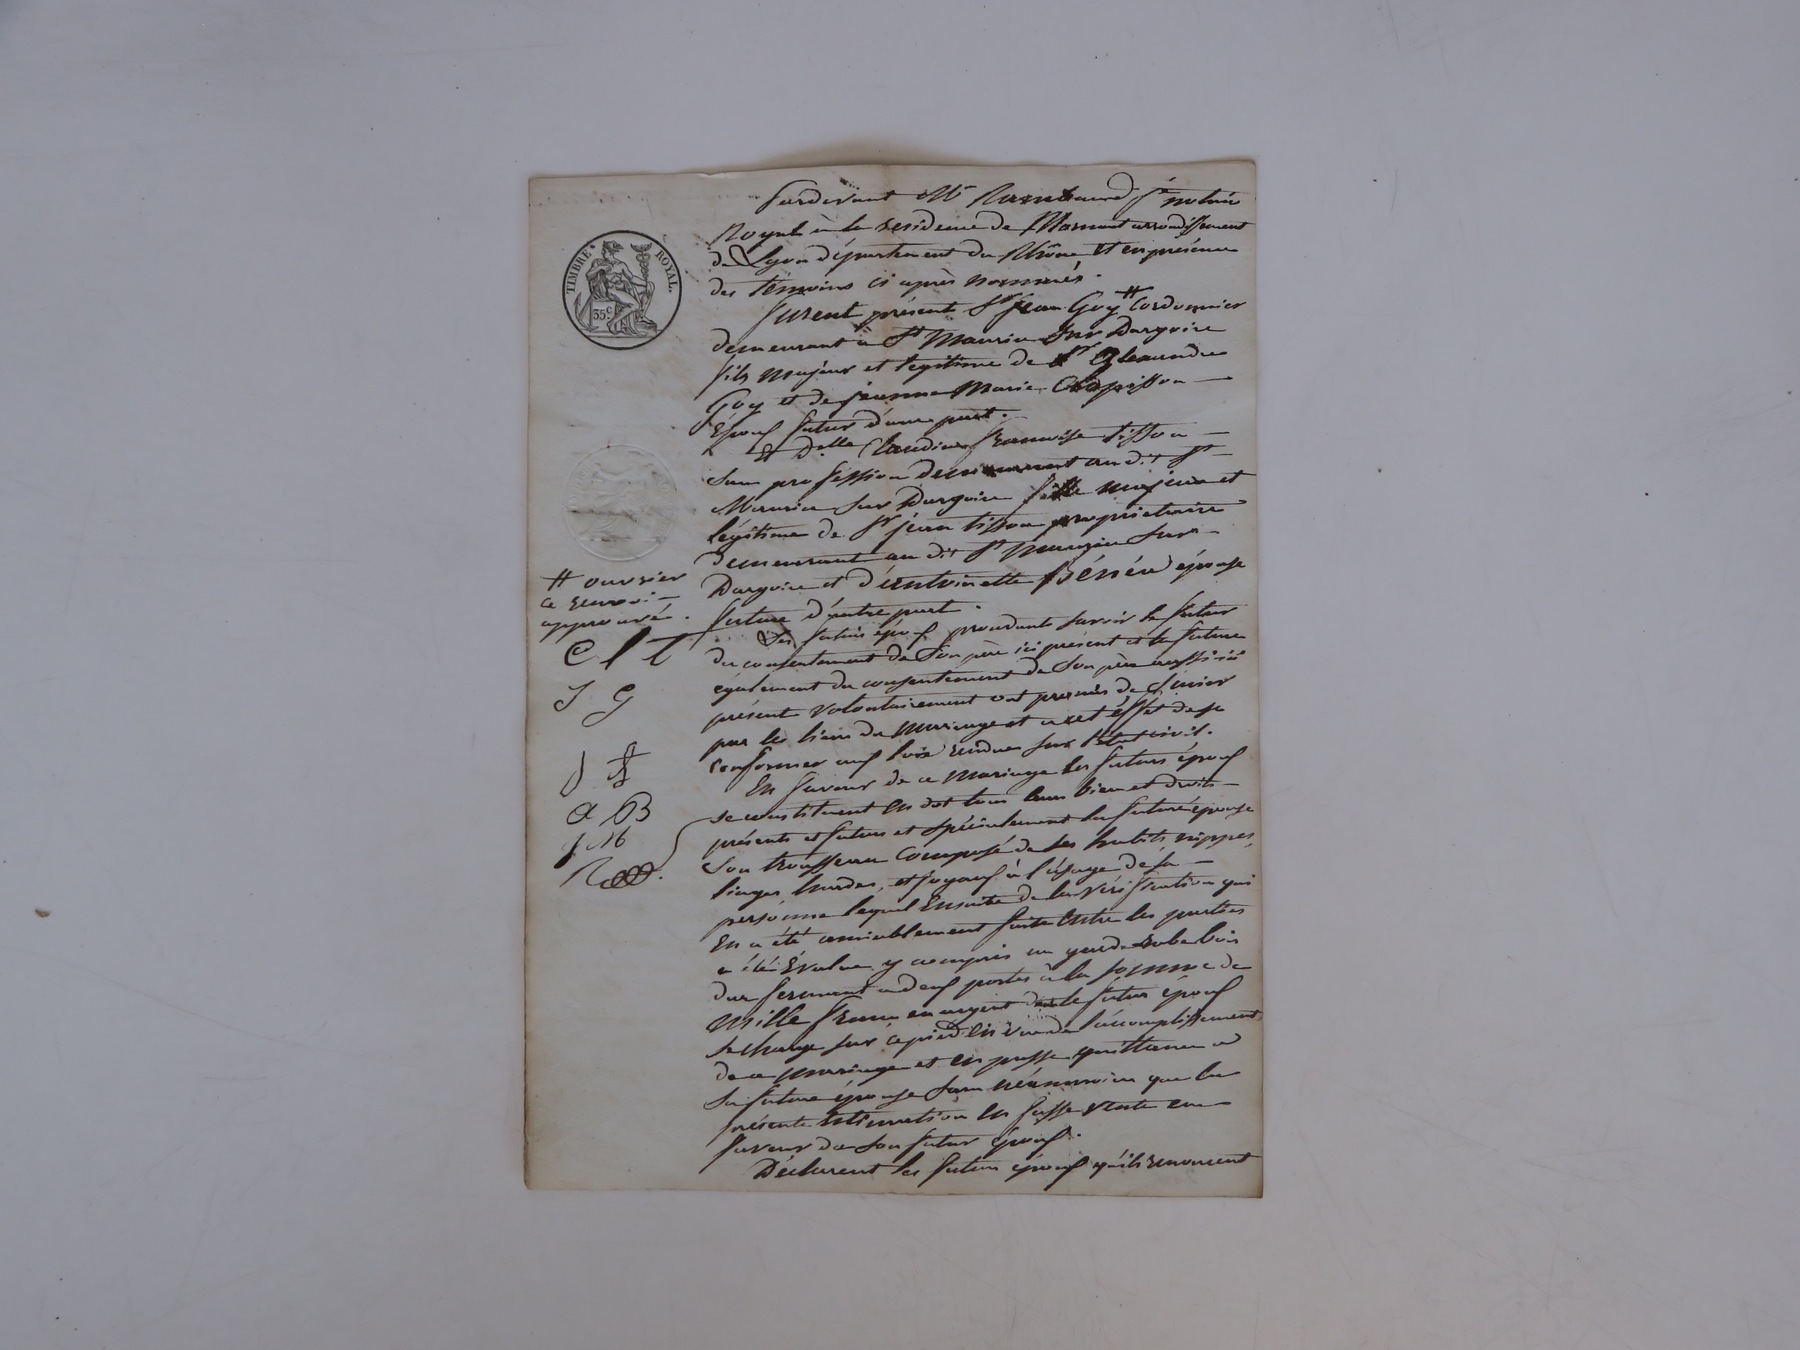 TIMBRE ROYAL.
35c
Pardevant Me Rambaud notaire
Royal à la residence de Mornant arrondissement
de Lyon département du Rhône et en présence
des témoins ci après nommés.
furent présent Sr jean Goy # Cordonnier
demeurant à St Maurice Sur Dargoire
fils majeur et legitime de Sr Alexandre
Goy et de jeanne Marie Chapisson
Epoux futur d'une part.
Et Dlle Claudine françoise tisson
Sans profession demeurant au dit St
Maurice Sur Dargoire fille majeure et
légitime de Sr jean tisson propriétaire
demeurant au dit St Maurice Sur
Dargoire et d'antoinette épouse
future d'autre part.
# ouvrier
ce renvoi
approuvé.
C f T
J G
A B
Les futurs époux procédants savoir le futur
du consentement de Son père ici présent et la future
également du consentement de Son père aussi ici
présent volontairement ont promis de S'unir
par les liens du Mariage et à cet éffet de se
conformer aux loix rendues sur l'état civil.
En faveur de ce Mariage les futurs époux
se constituent en dot tous leurs biens et droits
présents et futurs et spécialement la future épouse
Son trousseau Composé de ses habits, nippes,
linges hardes, et joyaux à l'usage de sa
personne lequel Ensuite de la vérification qui
En a été amiablement faite entre les parties
a été Évalué y compris un garderobe bois
dur fermant à deux portes à la somme de
Mille francs en argent dont le futur époux
se charge sur ce pied en vue de l'accomplissement
de ce mariage et en passe quittance à
Sa future épouse Sans néanmoins que la
présente estimation en fasse vente en
faveur de son futur époux.
Déclarent les futurs époux qu'ils renoncent